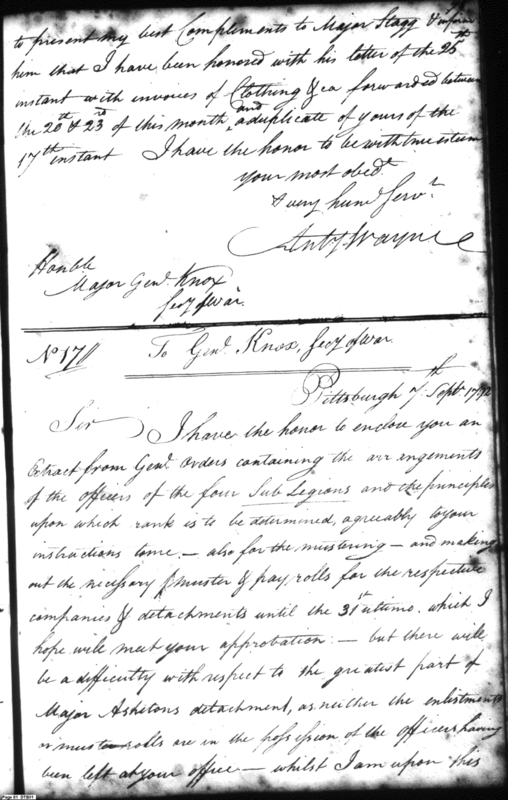 to present my best Complements to Major Stagg & inform
him that I have been honored with his letter of the 25th
instant with invoices of Clothing &ca forwarded between
the 20th & 23rd of this month, and a duplicate of yours of the
17th instant I have the honor to be with true esteem
your most obedt
& very huml Servt
Anty Wayne
Honble
Major Genl Knox
Secy of War.
No 17
To Genl Knox, Secy of War.
Pittsburgh 7th Sept 1792
Sir I have the honor to enclose you an
Extract from Genl Orders containing the arrengements
of the officers of the four Sub Legions and the principles
upon which rank is to be determined, agreeably to your
instructions to me. — also for the mustering — and making
out the necessary muster & pay rolls for the respective
companies & detachments until the 31st ultimo. which I
hope will meet your approbation: — but there will
be a difficulty with respect to the greatest part of
Major Ashetons detachment, as neither the enlistments
or muster rolls are in the possession of the officers having
been left at your office — whilst I am upon this